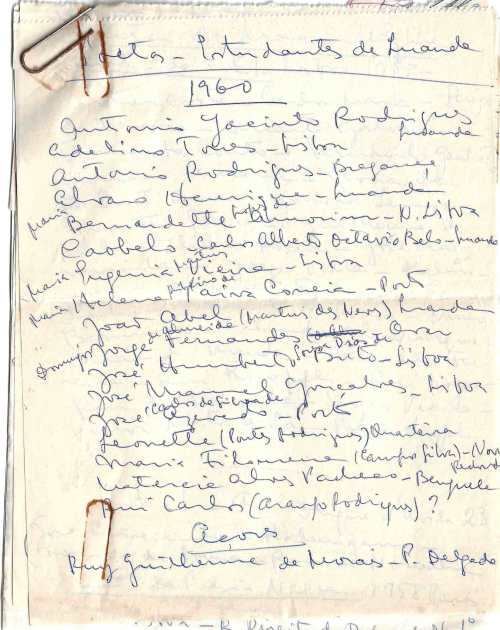 Poetas - Estudantes de Luanda
1960
António Jacinto Rodrigues
Luanda
Adelino Torres - Lisboa
António Rodrigues - Bragança
Álvaro Henrique - Luanda
Maria Bernardette Amorim - N. Lisboa
Caobelo - Carlos Alberto Octavio Belo - Luanda
Maria Eugenia Vieira - Lisboa
Maria Helena Paiva Correia - Porto
João Abel (Martins das Neves) Luanda
Domingos Jorge Fernandes
José Humberto Brito - Lisboa
José Manuel Gonçalves - Lisboa
José Carlos de Silva Azevedo - Porto
Leonette (Pontes Rodrigues) Quarteira
Maria Filomena (Campos Silva) - Novo
Redondo
Natércia Alves Pacheco - Benguela
Rui Carlos (Araujo Rodrigues) ?
Açores
Ruy Guilherme de Morais - P. Delgada